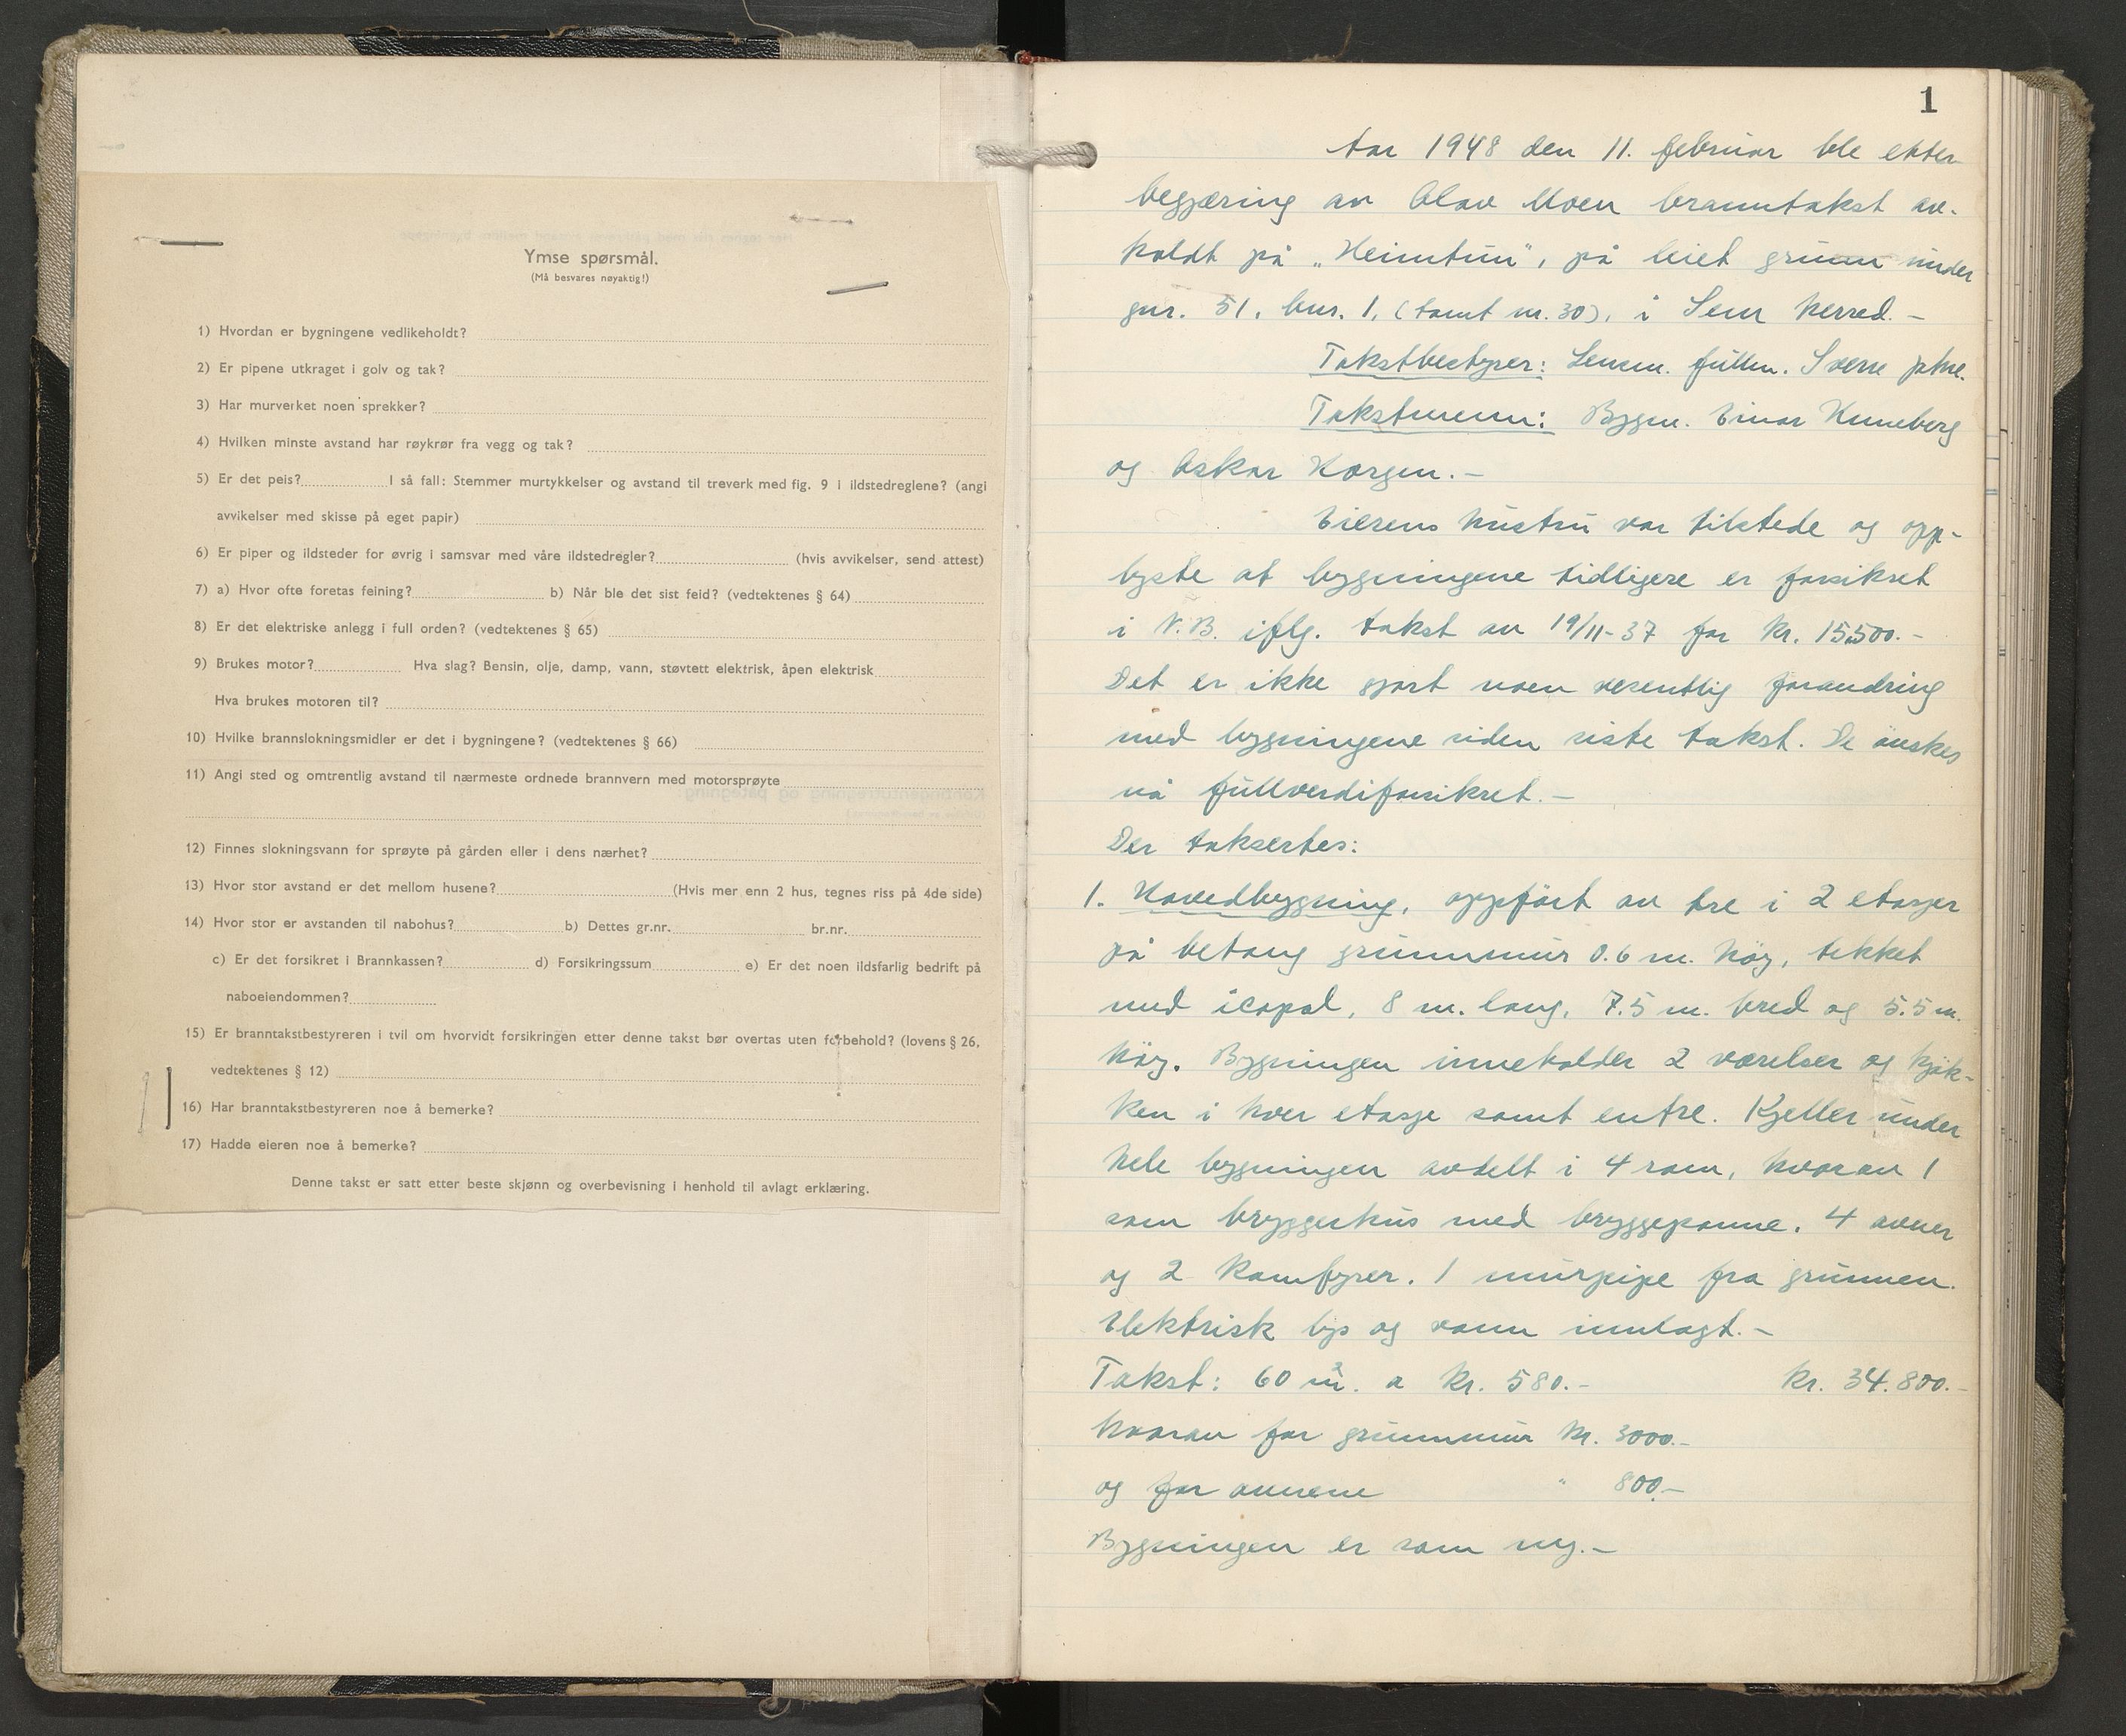 Ymse spørsmål.
(Må besvares nøyaktig!)
1) Hvordan er bygningene vedlikeholdt?
2) Er pipene utkraget i golv og tak?
3) Har murverket noen sprekker?
4) Hvilken minste avstand har røykrør fra vegg og tak?
5) Er det peis? I så fall: Stemmer murtykkelser og avstand til treverk med fig. 9 i ildstedreglene? (angi
avvikelser med skisse på eget papir)
6) Er piper og ildsteder for øvrig i samsvar med våre ildstedregler? (hvis avvikelser, send attest)
7) a) Hvor ofte foretas feining? b) Når ble det sist feid? (vedtektenes § 64)
8) Er det elektriske anlegg i full orden? (vedtektenes § 65)
9) Brukes motor? Hva slag? Bensin, olje, damp, vann, støvtett elektrisk, åpen elektrisk
Hva brukes motoren til?
10) Hvilke brannslokningsmidler er det i bygningene? (vedtektenes § 66)
11) Angi sted og omtrentlig avstand til nærmeste ordnede brannvern med motorsprøyte
12) Finnes slokningsvann for sprøyte på gården eller i dens nærhet?
13) Hvor stor avstand er det mellom husene? (Hvis mer enn 2 hus, tegnes riss på 4de side)
14) Hvor stor er avstanden til nabohus? b) Dettes gr.nr. br.nr.
c) Er det forsikret i Brannkassen? d) Forsikringssum e) Er det noen ildsfarlig bedrift på
naboeiendommen?
15) Er branntakstbestyreren i tvil om hvorvidt forsikringen etter denne takst bør overtas uten forbehold? (lovens § 26,
vedtektenes § 12)
16) Har branntakstbestyreren noe å bemerke?
17) Hadde eieren noe å bemerke?
Denne takst er satt etter beste skjønn og overbevisning i henhold til avlagt erklæring.
1
Aar 1948 den 11. februar ble etter
begjæring av Olav Moen branntakst av-
holdt på „Heimtun", på leiet grunn under
gnr. 51, bnr. 1, (tomt nr. 30), i Sem herred. -
Takstbestyrer: Lensm. fullm. Sverre
Takstmenn: Bygm. Einar Unneberg
og Oskar Horgen. -
Eierens hustru var tilstede og opp-
lyste at bygningene tidligere er forsikret
i N.B. iflg. takst av 19/11-37 for kr. 15500.-
Det er ikke gjort noen vesentlig forandring
med bygningene siden siste takst. De ønskes
nå fullverdiforsikret. -
Der takseres:
1. Hovedbygning, oppført av tre i 2 etasjer
på betong grunnmur 0.6 m. høy, tekket
med icopal, 8 m. lang, 7.5 m. bred og 5.5 m.
høy. Bygningen inneholder 2 værelser og kjøk-
ken i hver etasje samt entre. Kjeller under
hele bygningen avdelt i 4 rom, hvorav 1
som bryggerhus med bryggepanne. 4 ovner
og 2 komfyrer. 1 murpipe fra grunnen.
Elektrisk lys og vann innlagt. -
Takst: 60 m². a kr. 580.- kr. 34.800.-
hvorav for grunnmur kr. 3000.-
og for ovnene " 800.-
Bygningen er som ny. -